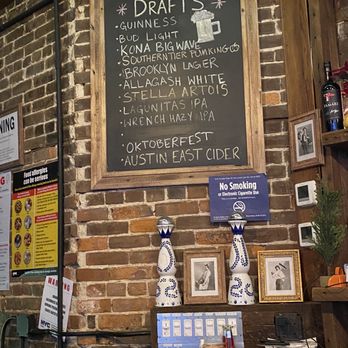 DRAFTS
GUINNESS
BUD LIGHT
KONA BIG WAVE
SOUTHERN TIER PUMKING
BROOKLYN LAGER
ALLAGASH WHITE
STELLA ARTOIS
LAGUNITAS IPA
WRENCH HAZY IPA
OKTOBERFEST
AUSTIN EAST CIDER
No Smoking
or Electronic Cigarette Use
Food allergies
can be serious.